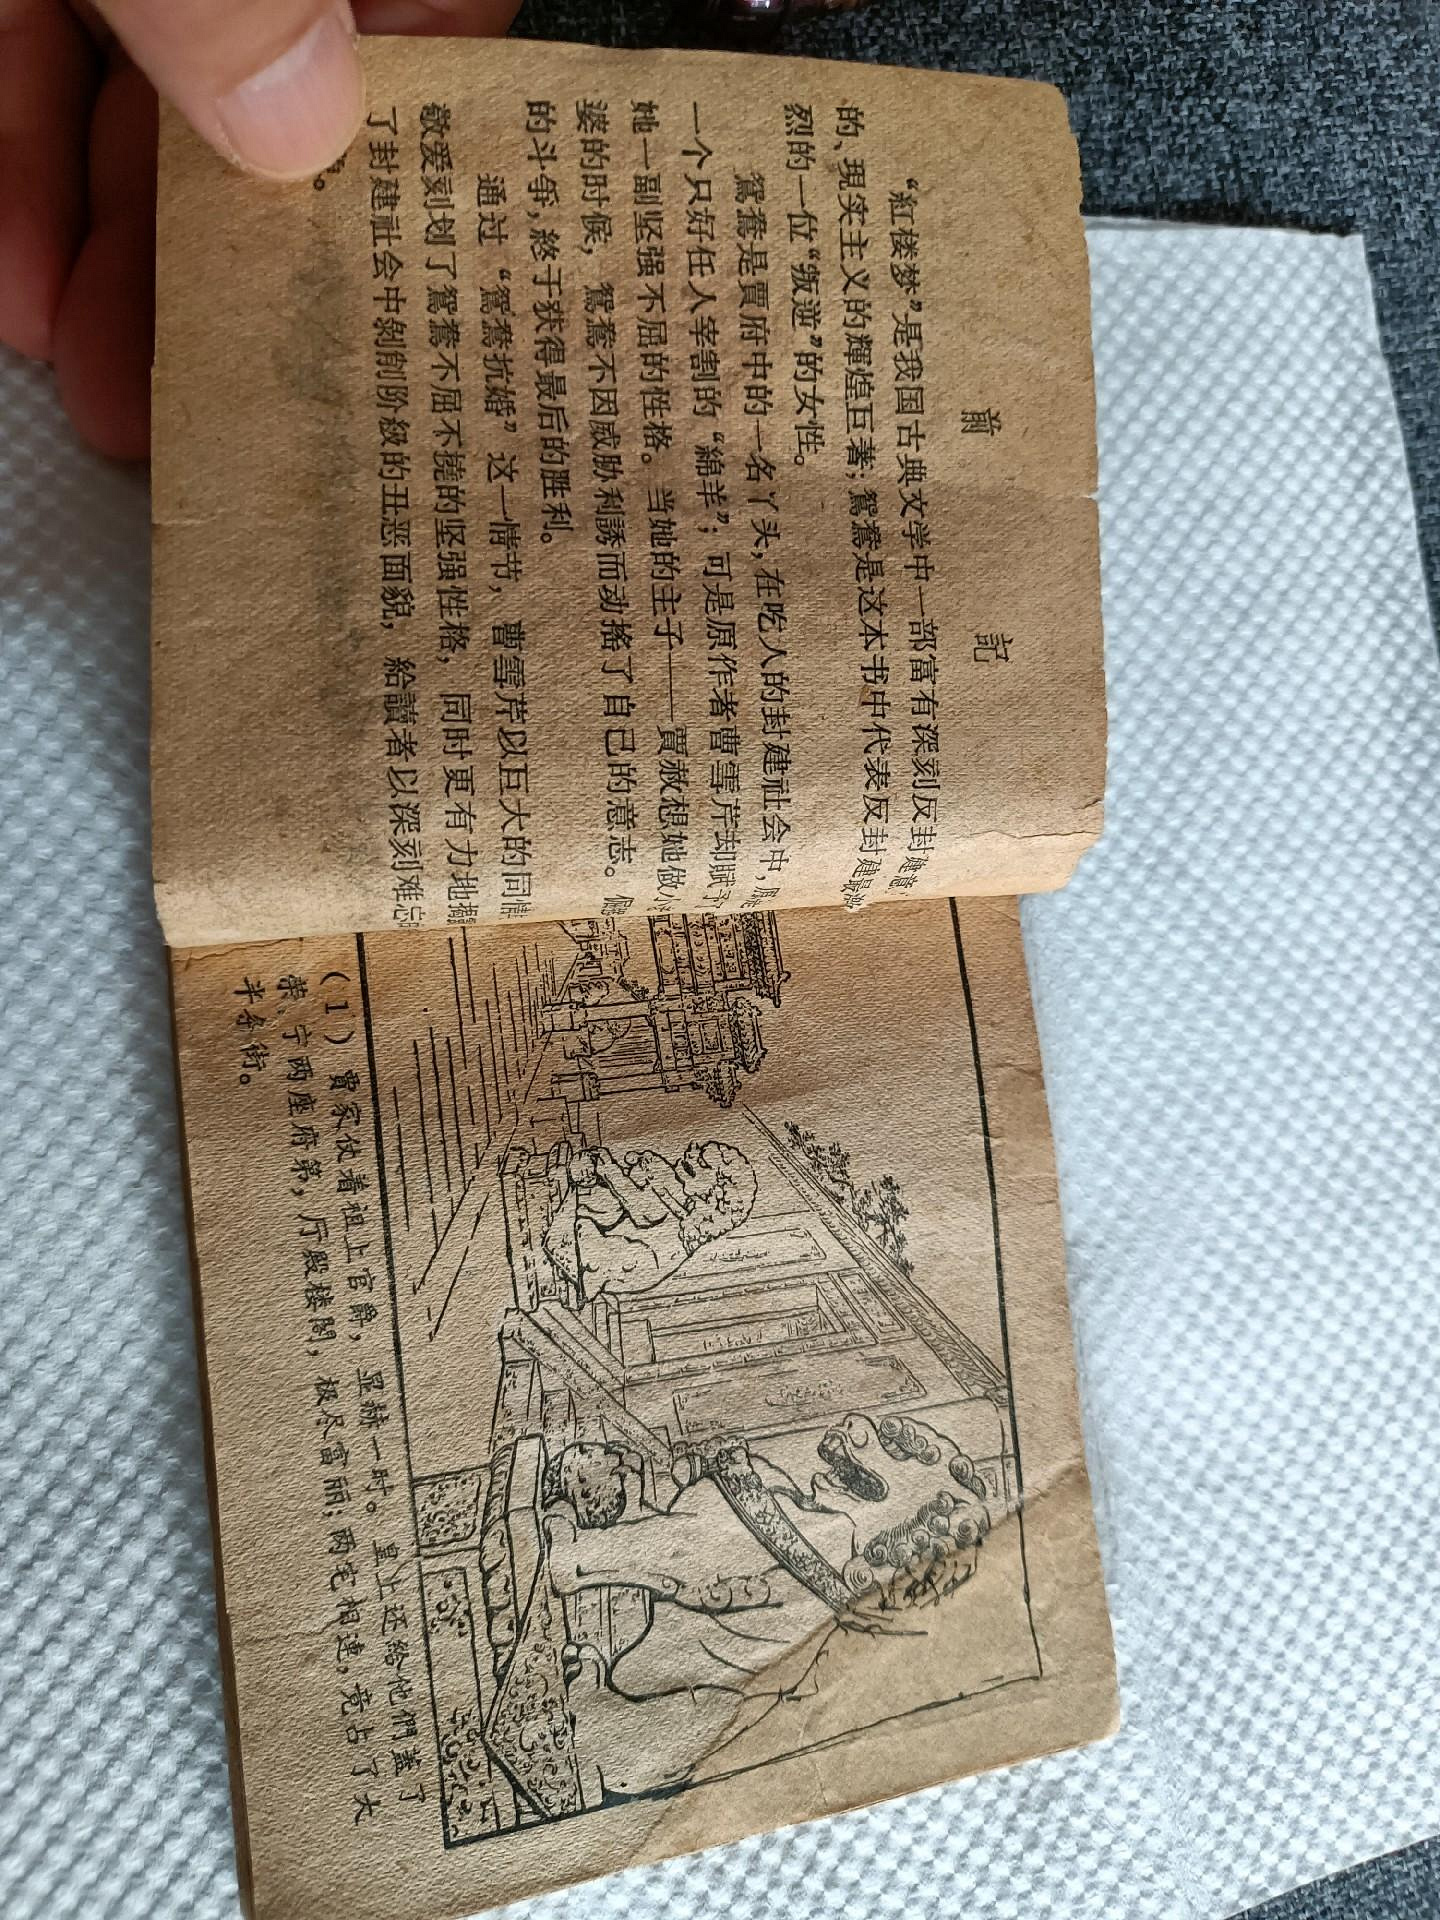 前 記
“紅楼梦”是我国古典文学中一部富有深刻反封建意
的、現实主义的輝煌巨著；鴛鴦是这本书中代表反封建最激
烈的一位“叛逆”的女性。
鴛鴦是賈府中的一名丫头，在吃人的封建社会中，
一个只好任人宰割的“綿羊”；可是原作者曹雪芹却賦予
她一副坚强不屈的性格。当她的主子——賈赦想她做小
婆的时候，鴛鴦不因威胁利誘而动搖了自己的意志。
的斗爭，終于获得最后的胜利。
通过“鴛鴦抗婚”这一情节，曹雪芹以巨大的同情
敬爱刻划了鴛鴦不屈不撓的坚强性格，同时更有力地
了封建社会中剝削阶級的丑恶面貌，給讀者以深刻难忘
。
（1）賈家仗着祖上官爵，显赫一时。皇上还給他們蓋了
荣、宁两座府第，厅殿楼閣，极尽富丽；两宅相連，竟占了大
半条街。